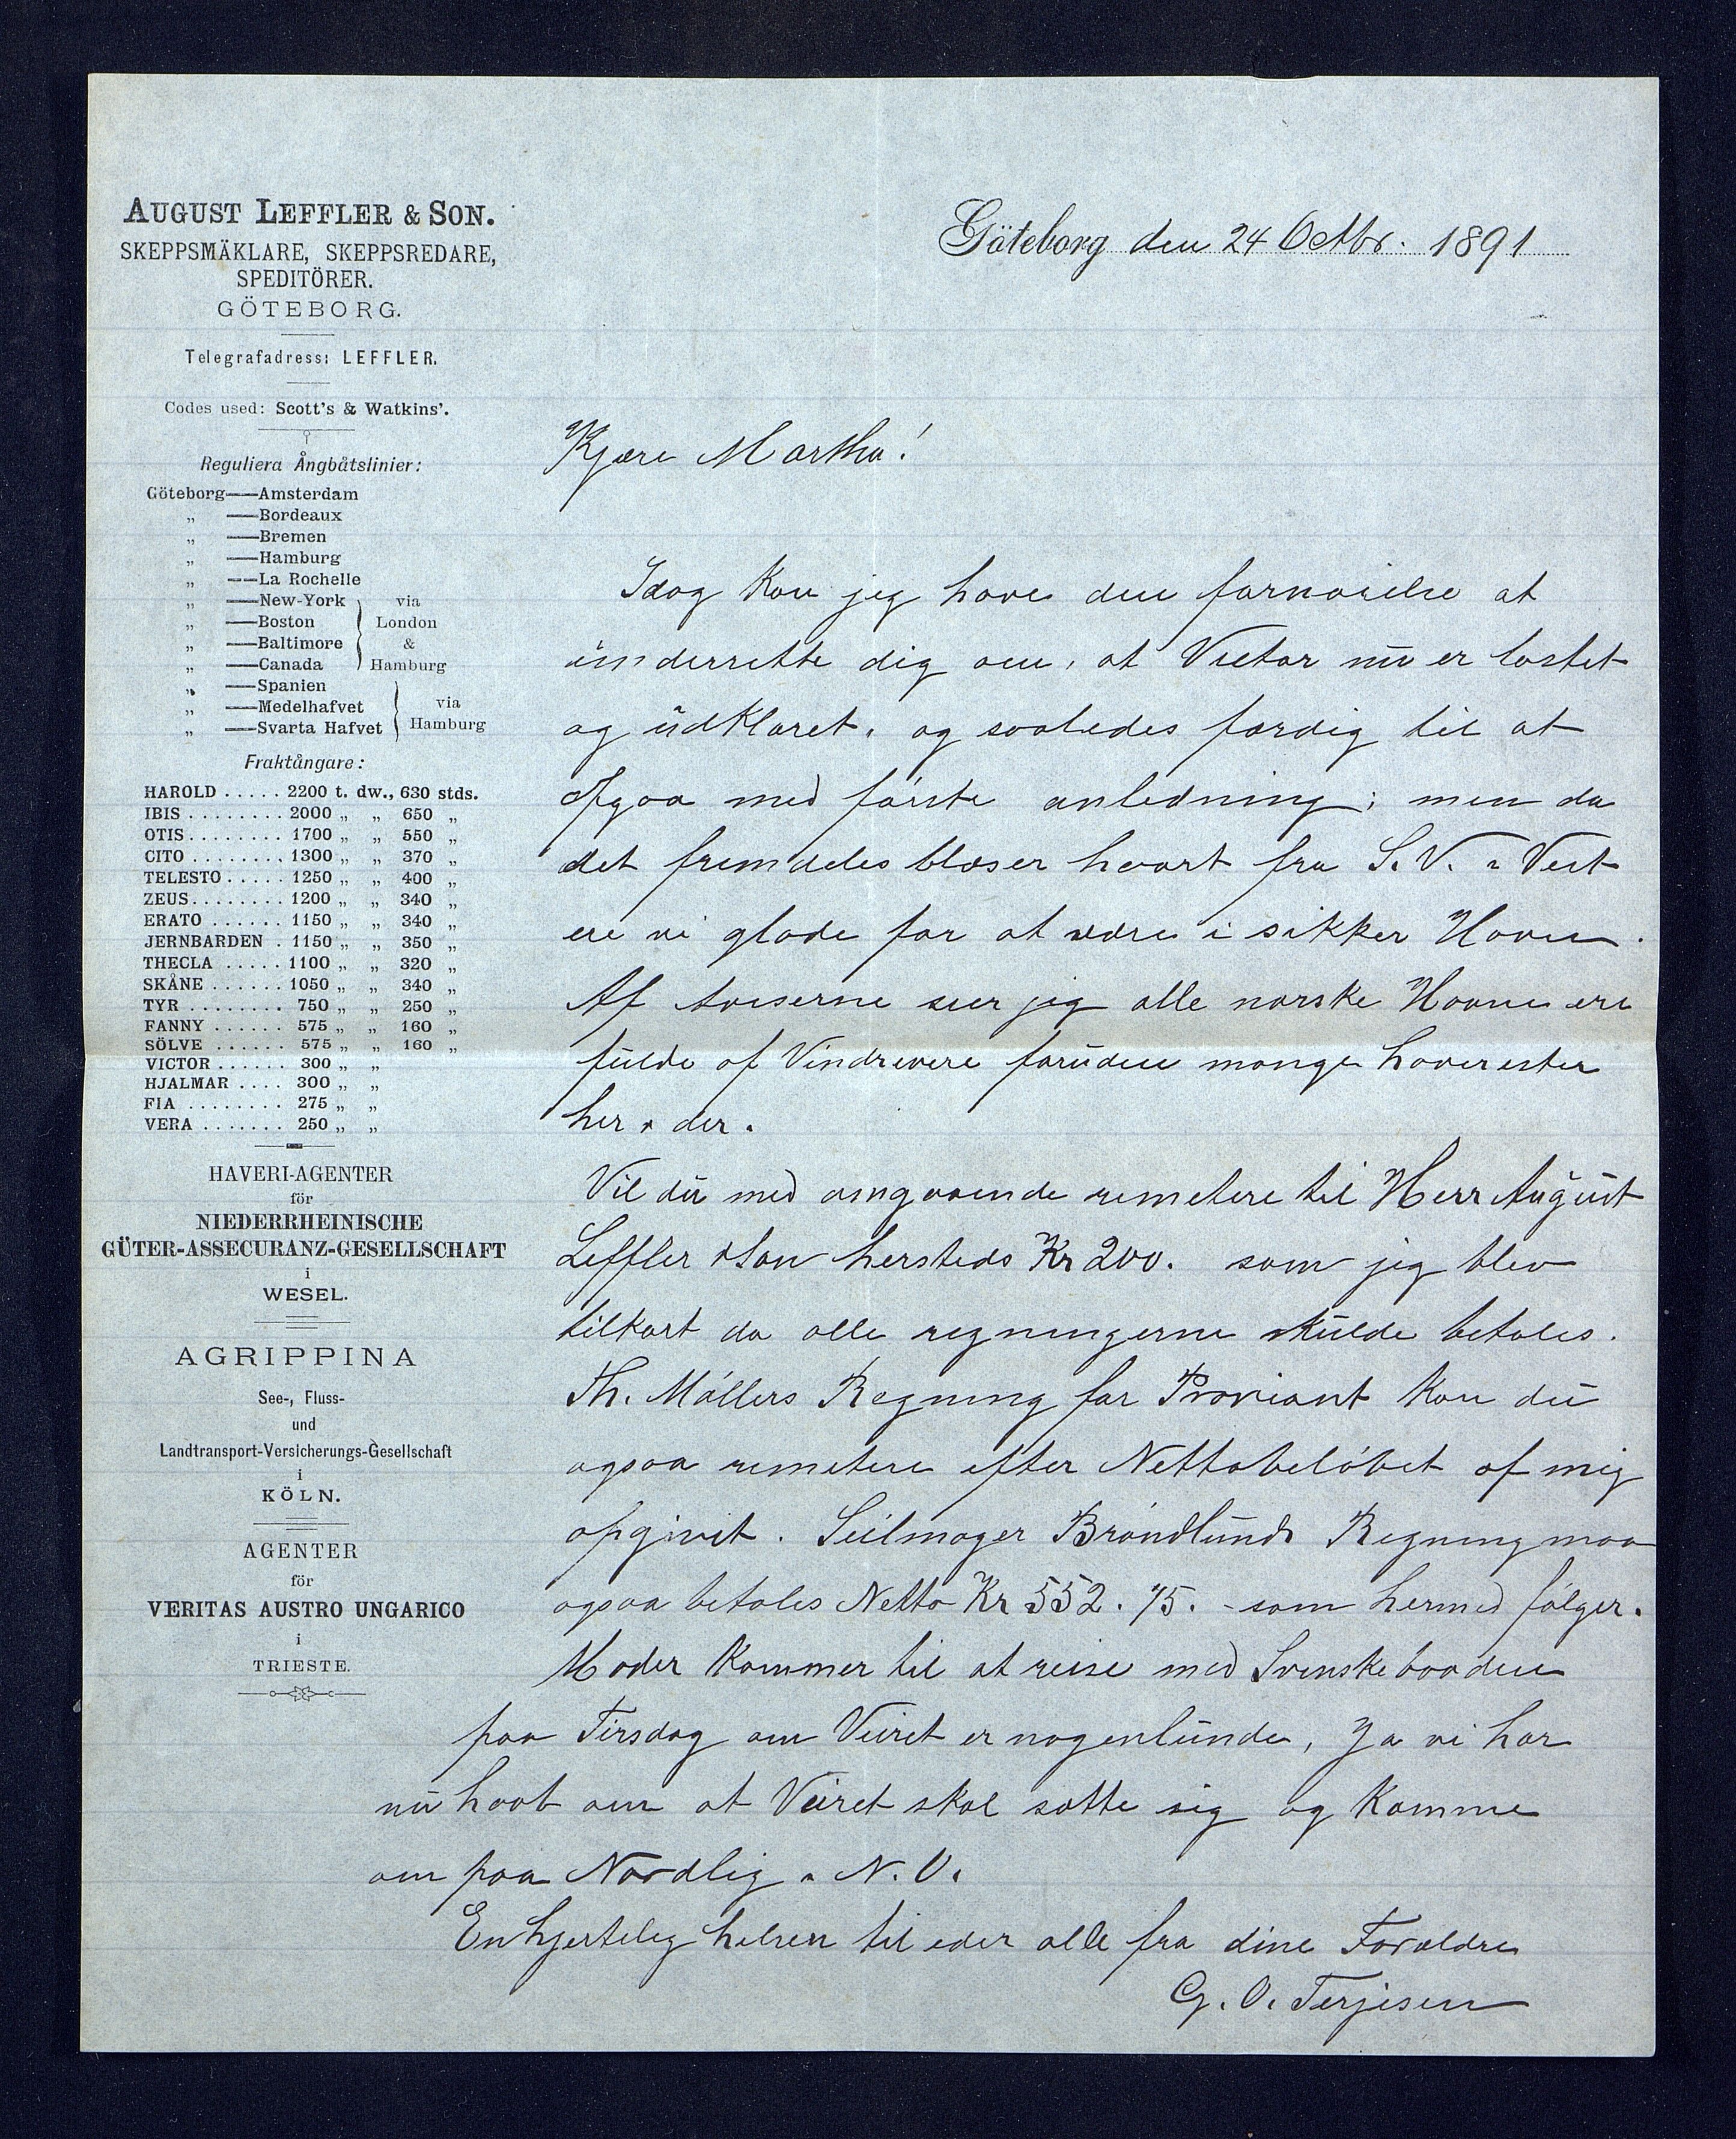 AUGUST LEFFLER & SON.
SKEPPSMÄKLARE, SKEPPSREDARE,
SPEDITÖRER.
GÖTEBORG.
Telegrafadress: LEFFLER.
Codes used: Scott's & Watkins'.
Reguliera Ångbåtslinier:
Göteborg—Amsterdam
„ —Bordeaux
„ —Bremen
„ —Hamburg
„ —La Rochelle
„ —New-York via
„ —Boston London
„ —Baltimore &
„ —Canada Hamburg
„ —Spanien
„ —Medelhafvet via
„ —Svarta Hafvet Hamburg
Fraktångare:
HAROLD ..... 2200 t. dw., 630 stds.
IBIS ........ 2000 „ „ 650 „
OTIS ........ 1700 „ „ 550 „
CITO ........ 1300 „ „ 370 „
TELESTO ..... 1250 „ „ 400 „
ZEUS ........ 1200 „ „ 340 „
ERATO ...... 1150 „ „ 340 „
JERNBARDEN . 1150 „ „ 350 „
THECLA ..... 1100 „ „ 320 „
SKÅNE ...... 1050 „ „ 340 „
TYR ........ 750 „ „ 250 „
FANNY ...... 575 „ „ 160 „
SÖLVE ...... 575 „ „ 160 „
VICTOR ...... 300 „ „
HJALMAR .... 300 „ „
FIA ........ 275 „ „
VERA ....... 250 „ „
HAVERI-AGENTER
för
NIEDERRHEINISCHE
GÜTER-ASSECURANZ-GESELLSCHAFT
i
WESEL.
AGRIPPINA
See-, Fluss-
und
Landtransport-Versicherungs-Gesellschaft
i
KÖLN.
AGENTER
för
VERITAS AUSTRO UNGARICO
i
TRIESTE.
Göteborg den 24 Octbr. 1891
Kjære Martha!
Idag kan jeg have den fornøielse at
underrette dig om, at Victor nu er lastet
og udklaret, og saaledes færdig til at
afgaa med første anledning; men da
det fremdeles blæser haart fra S.V. a Vest
ere vi glade for at være i sikker Havn.
Af Aviserne seer jeg alle norske Havne ere
fulde af Vindrevere foruden mange havrester
her & der.
Vil du med omgaaende remetere til Herr August
Leffler & Son hersteds Kr 200. som jeg blev
tilkort da alle regningerne skulde betales.
Th. Møllers Regning for Proviant kan du
ogsaa remetere efter Nettobeløbet af mig
opgivit. Seilmager Bröndlunds Regning maa
ogsaa betales Netto Kr 552.75. - som hermed følger.
Moder kommer til at reise med Svenskebaaden
paa Tirsdag om Veiret er nogenlunde, Ja vi har
nu haab om at Veiret skal sætte sig og komme
om paa Nordlig a N.V.
En hjertelig helsen til eder alle fra dine Forældre
G. O. Terjesen